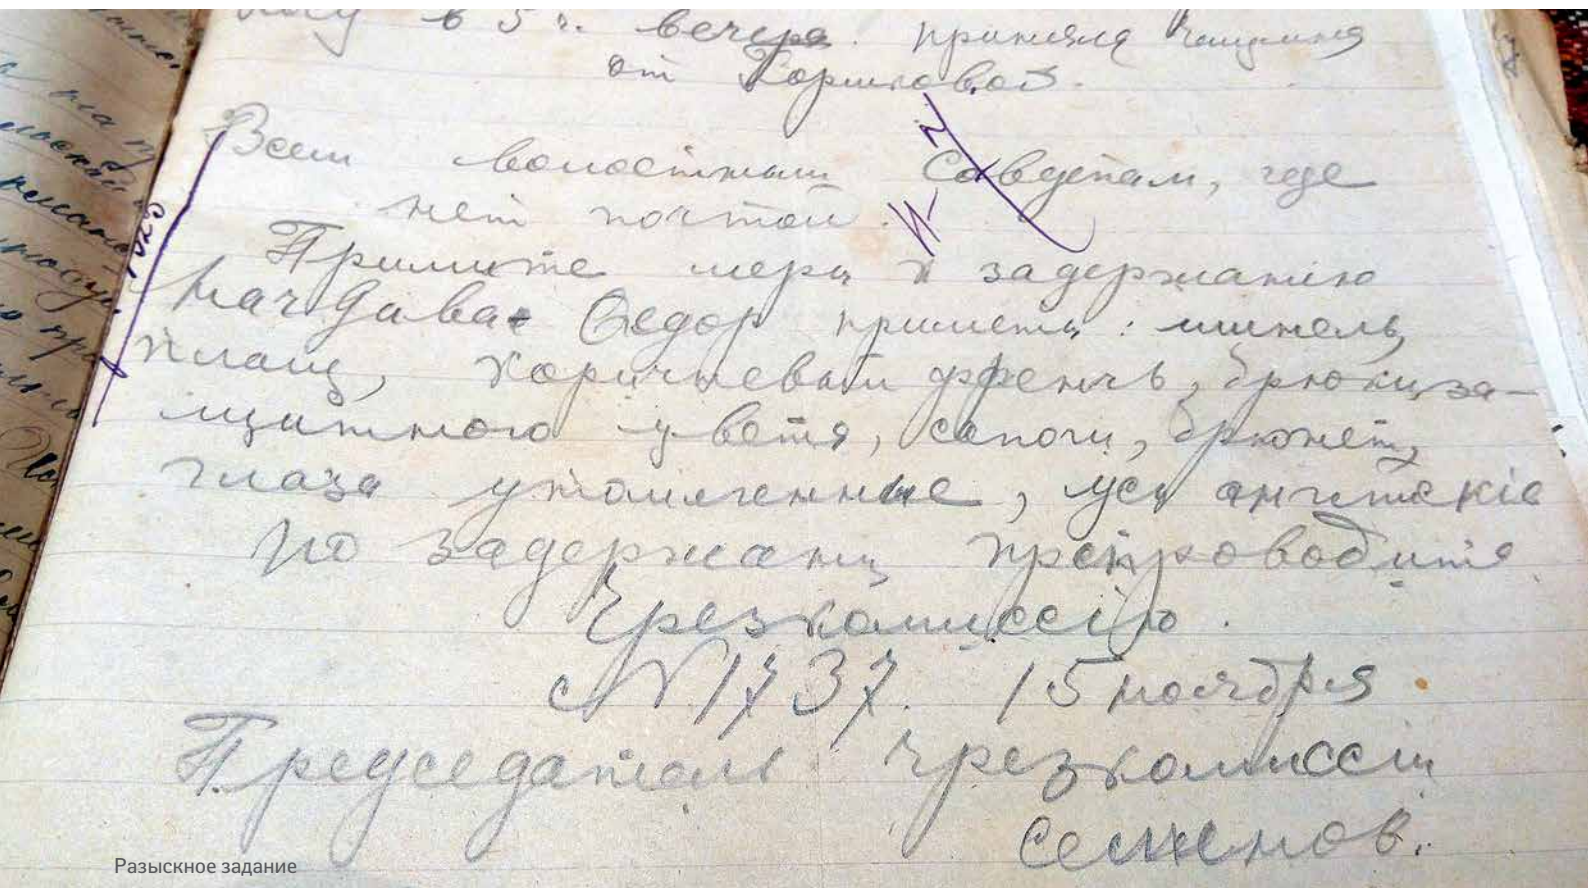 в 5 ч. вечера. приняла
от Горшковой.
Всем волостным Совдепам, где
нет почтой.
Примите меры к задержанію
Мачдава Ѳедор приметы: шинель,
плащ, коричневый френчъ, брюки за-
щитного цвета, сапоги, брюнет,
глаза утомленные, усы англскіе
по задержаны препроводитя
Чрезкомиссію.
№ 1737. 15 ноября
Председатель чрезкомиссіи
Семенов.
Разыскное задание